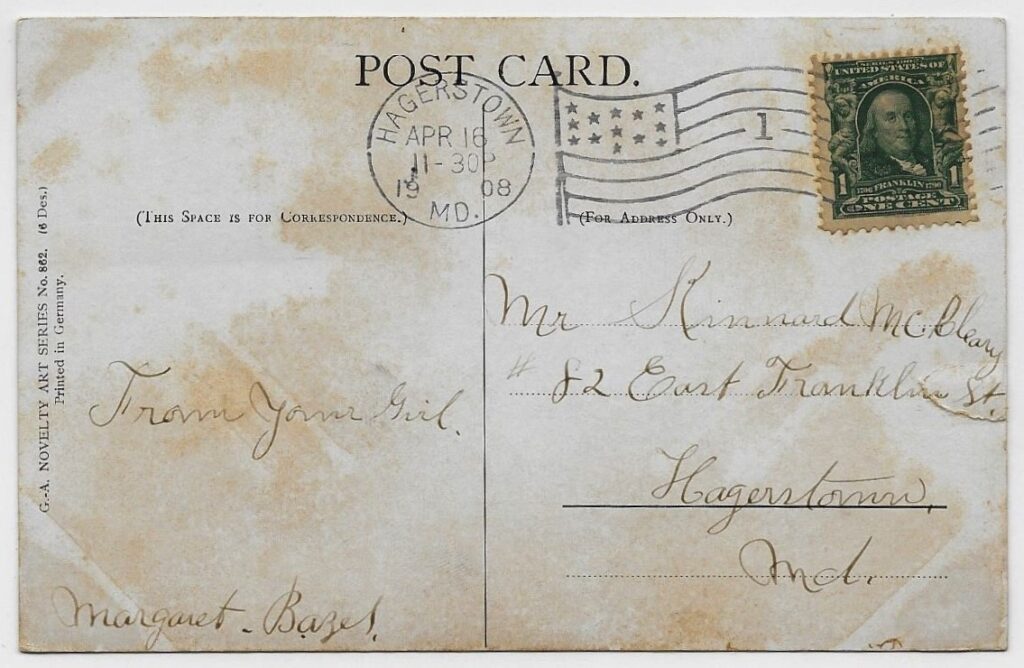 POST CARD.
HAGERSTOWN
APR 16
11-30P
19 08
MD.
1
SERIES 1902
UNITED STATES OF
AMERICA
1706 FRANKLIN 1790
1 1
POSTAGE
ONE CENT
(THIS SPACE IS FOR CORRESPONDENCE.)
(FOR ADDRESS ONLY.)
G.-A. NOVELTY ART SERIES No. 862. (6 Des.)
Printed in Germany.
From Your Girl.
Margaret - Bazel.
Mr Kinnard McCleary
# 82 East Franklin St.
Hagerstown,
Md.